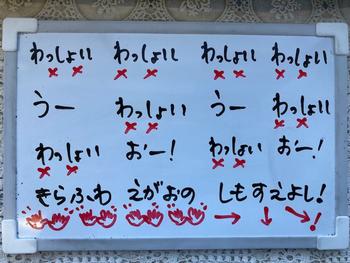 わっしょい わっしょい わっしょい わっしょい
うー わっしょい うー わっしょい
わっしょい おー! わっしょい おー!
きらふわ えがおの しもすえよし!